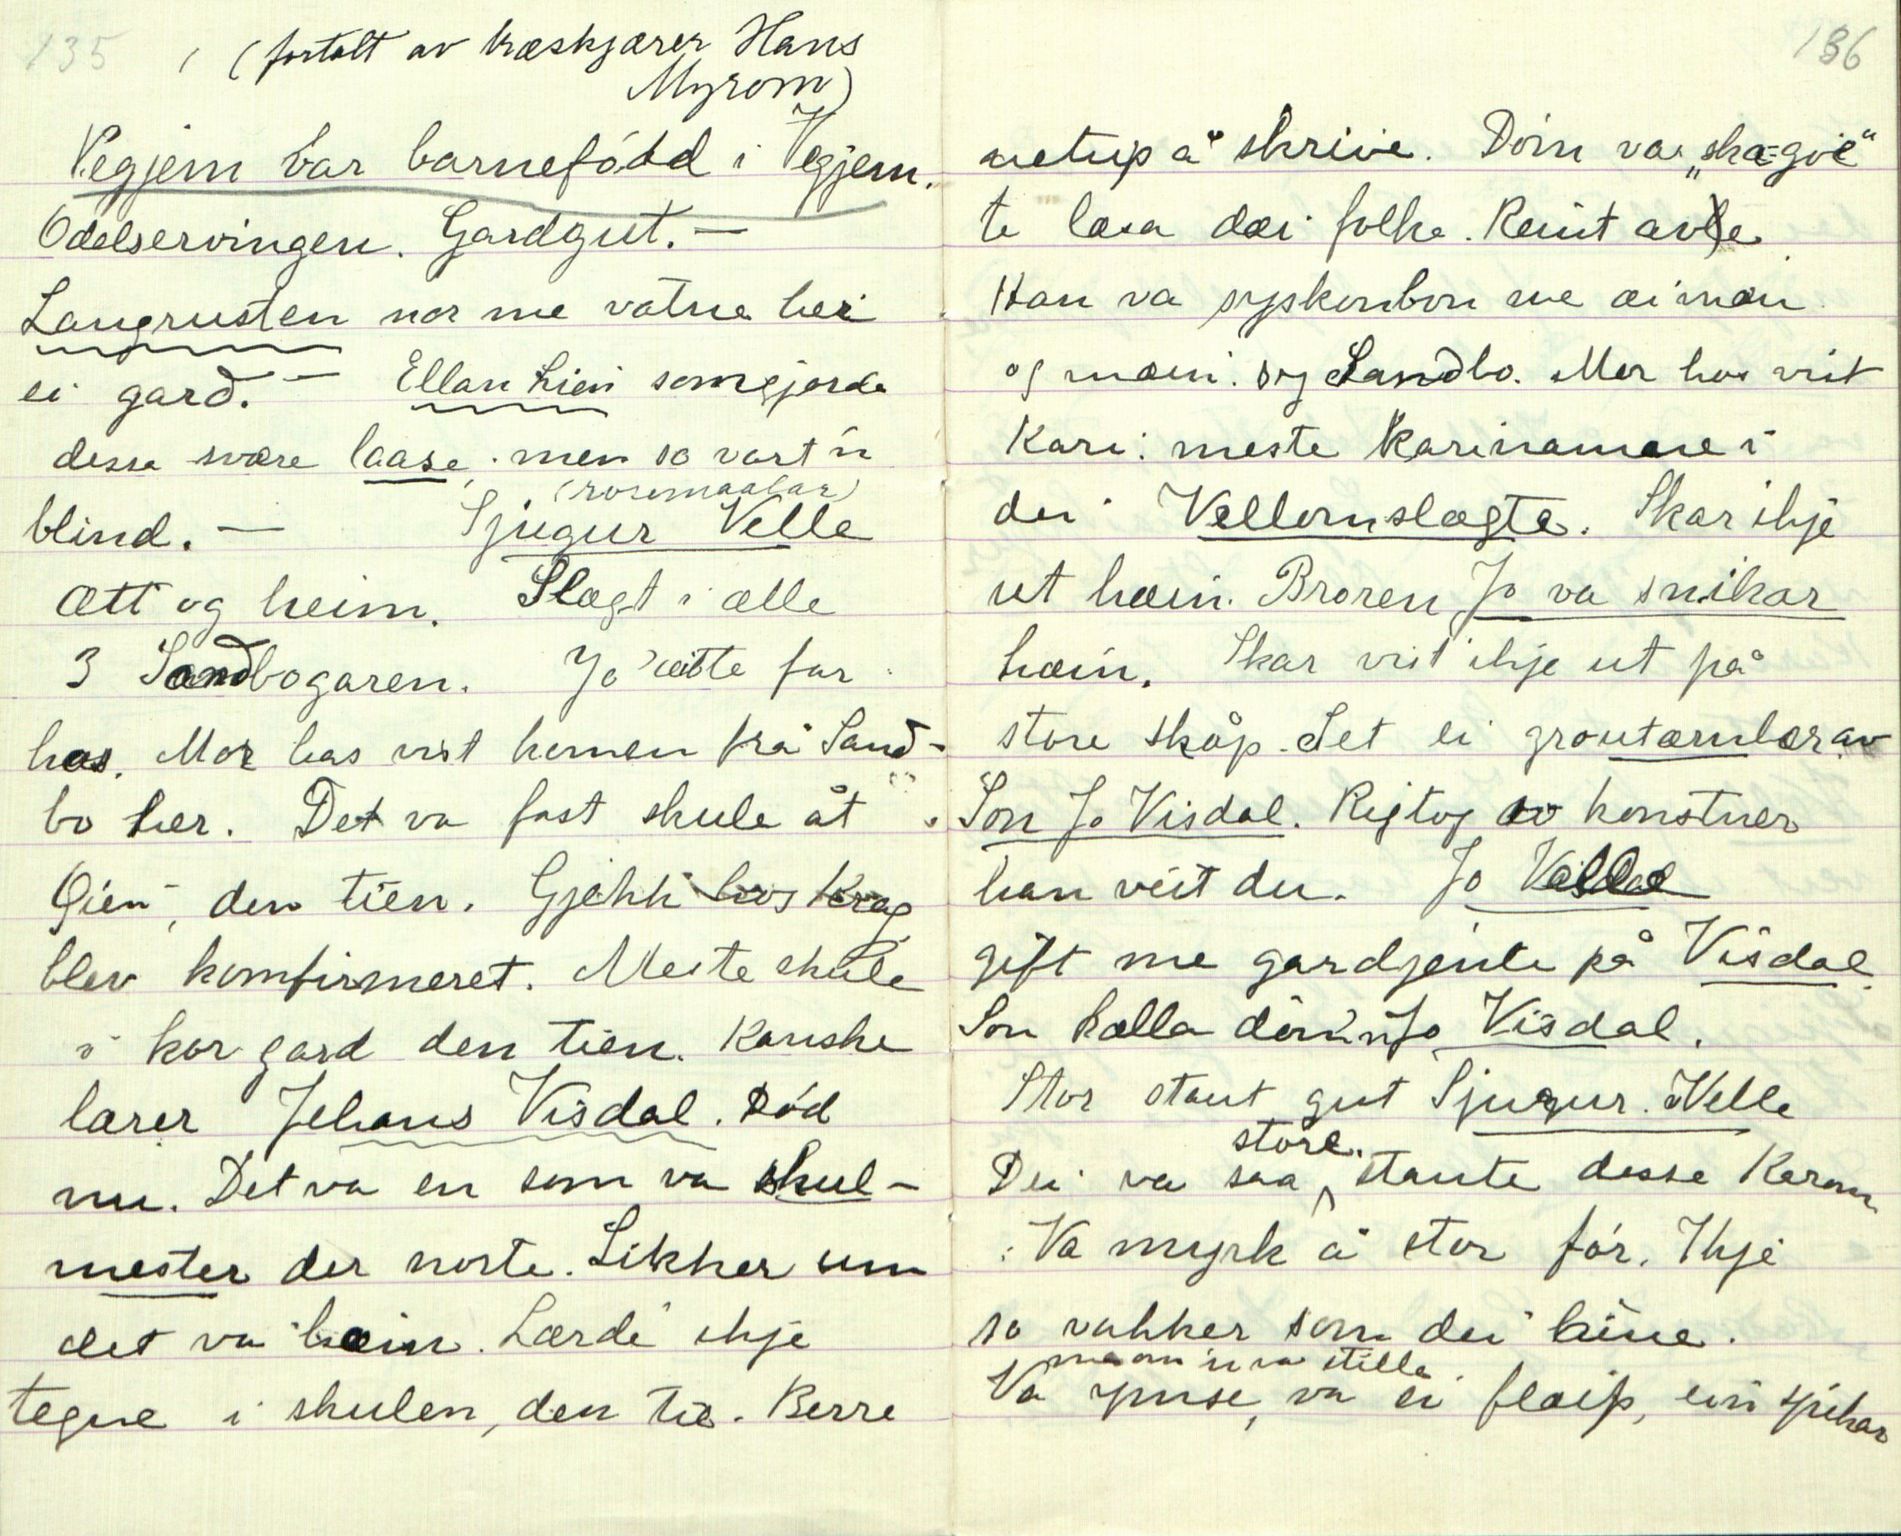 135
(fortalt av træskjærer Hans
Myrom)
Vegjem var barnefödd i Vegjem.
Odelservingen. Gardgut. —
Langrusten nor me vatne her
ei gard. — Ellan Lien som gjorde
desse svære laase, men so vart'n
blind. — (rosemaalar)
Sjugur Velle
Ætt og heim. Slægt i alle
3 Sandbogaren. Jo heitte far
has. Mor has vist komen frå Sand-
bo her. Det va fast skule åt
Øien, den tien. Gjekk
blev komfirmeret. Meste skule
i kor gard den tien. Kanske
lærer Jehans Visdal. Död
nu. Det va en som va skul-
mester der norte. Sikker um
det va hæin. Lærde ikje
tegne i skulen, den tie. Berre
136
netup å skrive. Döm va „skæ-gvé"
te læsa dæi folke. Reint avle
Han va syskenbon me æi mæn
og mæin. Sandbo. Mor has vist
Kari: meste Karinamne i
dei Vellomslægte. Skar ikje
ut hæin. Broren Jo va snikar
hæin. Skar vist ikje ut på
store skåp. Set ei av
Son Jo Visdal. Rigtog konstner
han veit du. Jo Visdal
gift me gardjente på Visdal.
Son kalla döm'n Jo Visdal.
Stor staut gut Sjugur Velle
Dei va saa store, staute desse Karan
Va myrk å stor för. Ikje
so vakker som dei hine.
maan'n va stille
Va ymse, va ei flæip, ein spikar